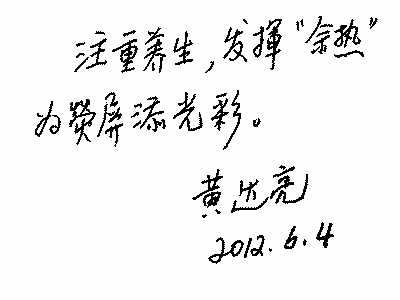 注重养生，发揮“余热”
为熒屏添光彩。
黄达亮
2012.6.4